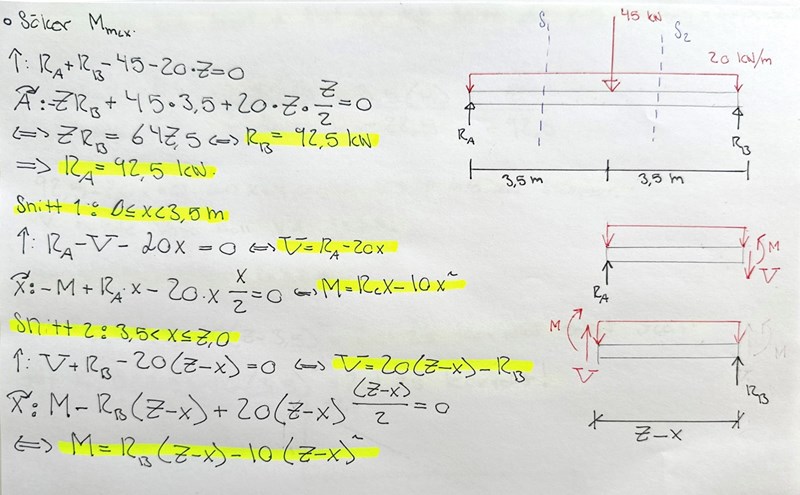 • Söker Mmax.
↑: RA+RB-45-20·7=0
A: -7RB + 45·3,5+20·7·7/2=0
⟺ 7RB = 647,5 ⟺ RB = 92,5 kN
⟹ RA = 92,5 kN.
Snitt 1: 0≤x<3,5 m
↑: RA-V-20x = 0 ⟺ V=RA-20x
x: -M+RA·x-20·x x/2=0 ⟺ M=RAx-10x²
Snitt 2: 3,5<x≤7,0
↑: V+RB-20(7-x)=0 ⟺ V=20(7-x)-RB
x: M-RB(7-x)+20(7-x)(7-x)/2=0
⟺ M=RB(7-x)-10(7-x)²
S1
45 kN
S2
20 kN/m
RA
RB
3,5 m
3,5 m
M
V
RA
M
V
M
RB
7-x